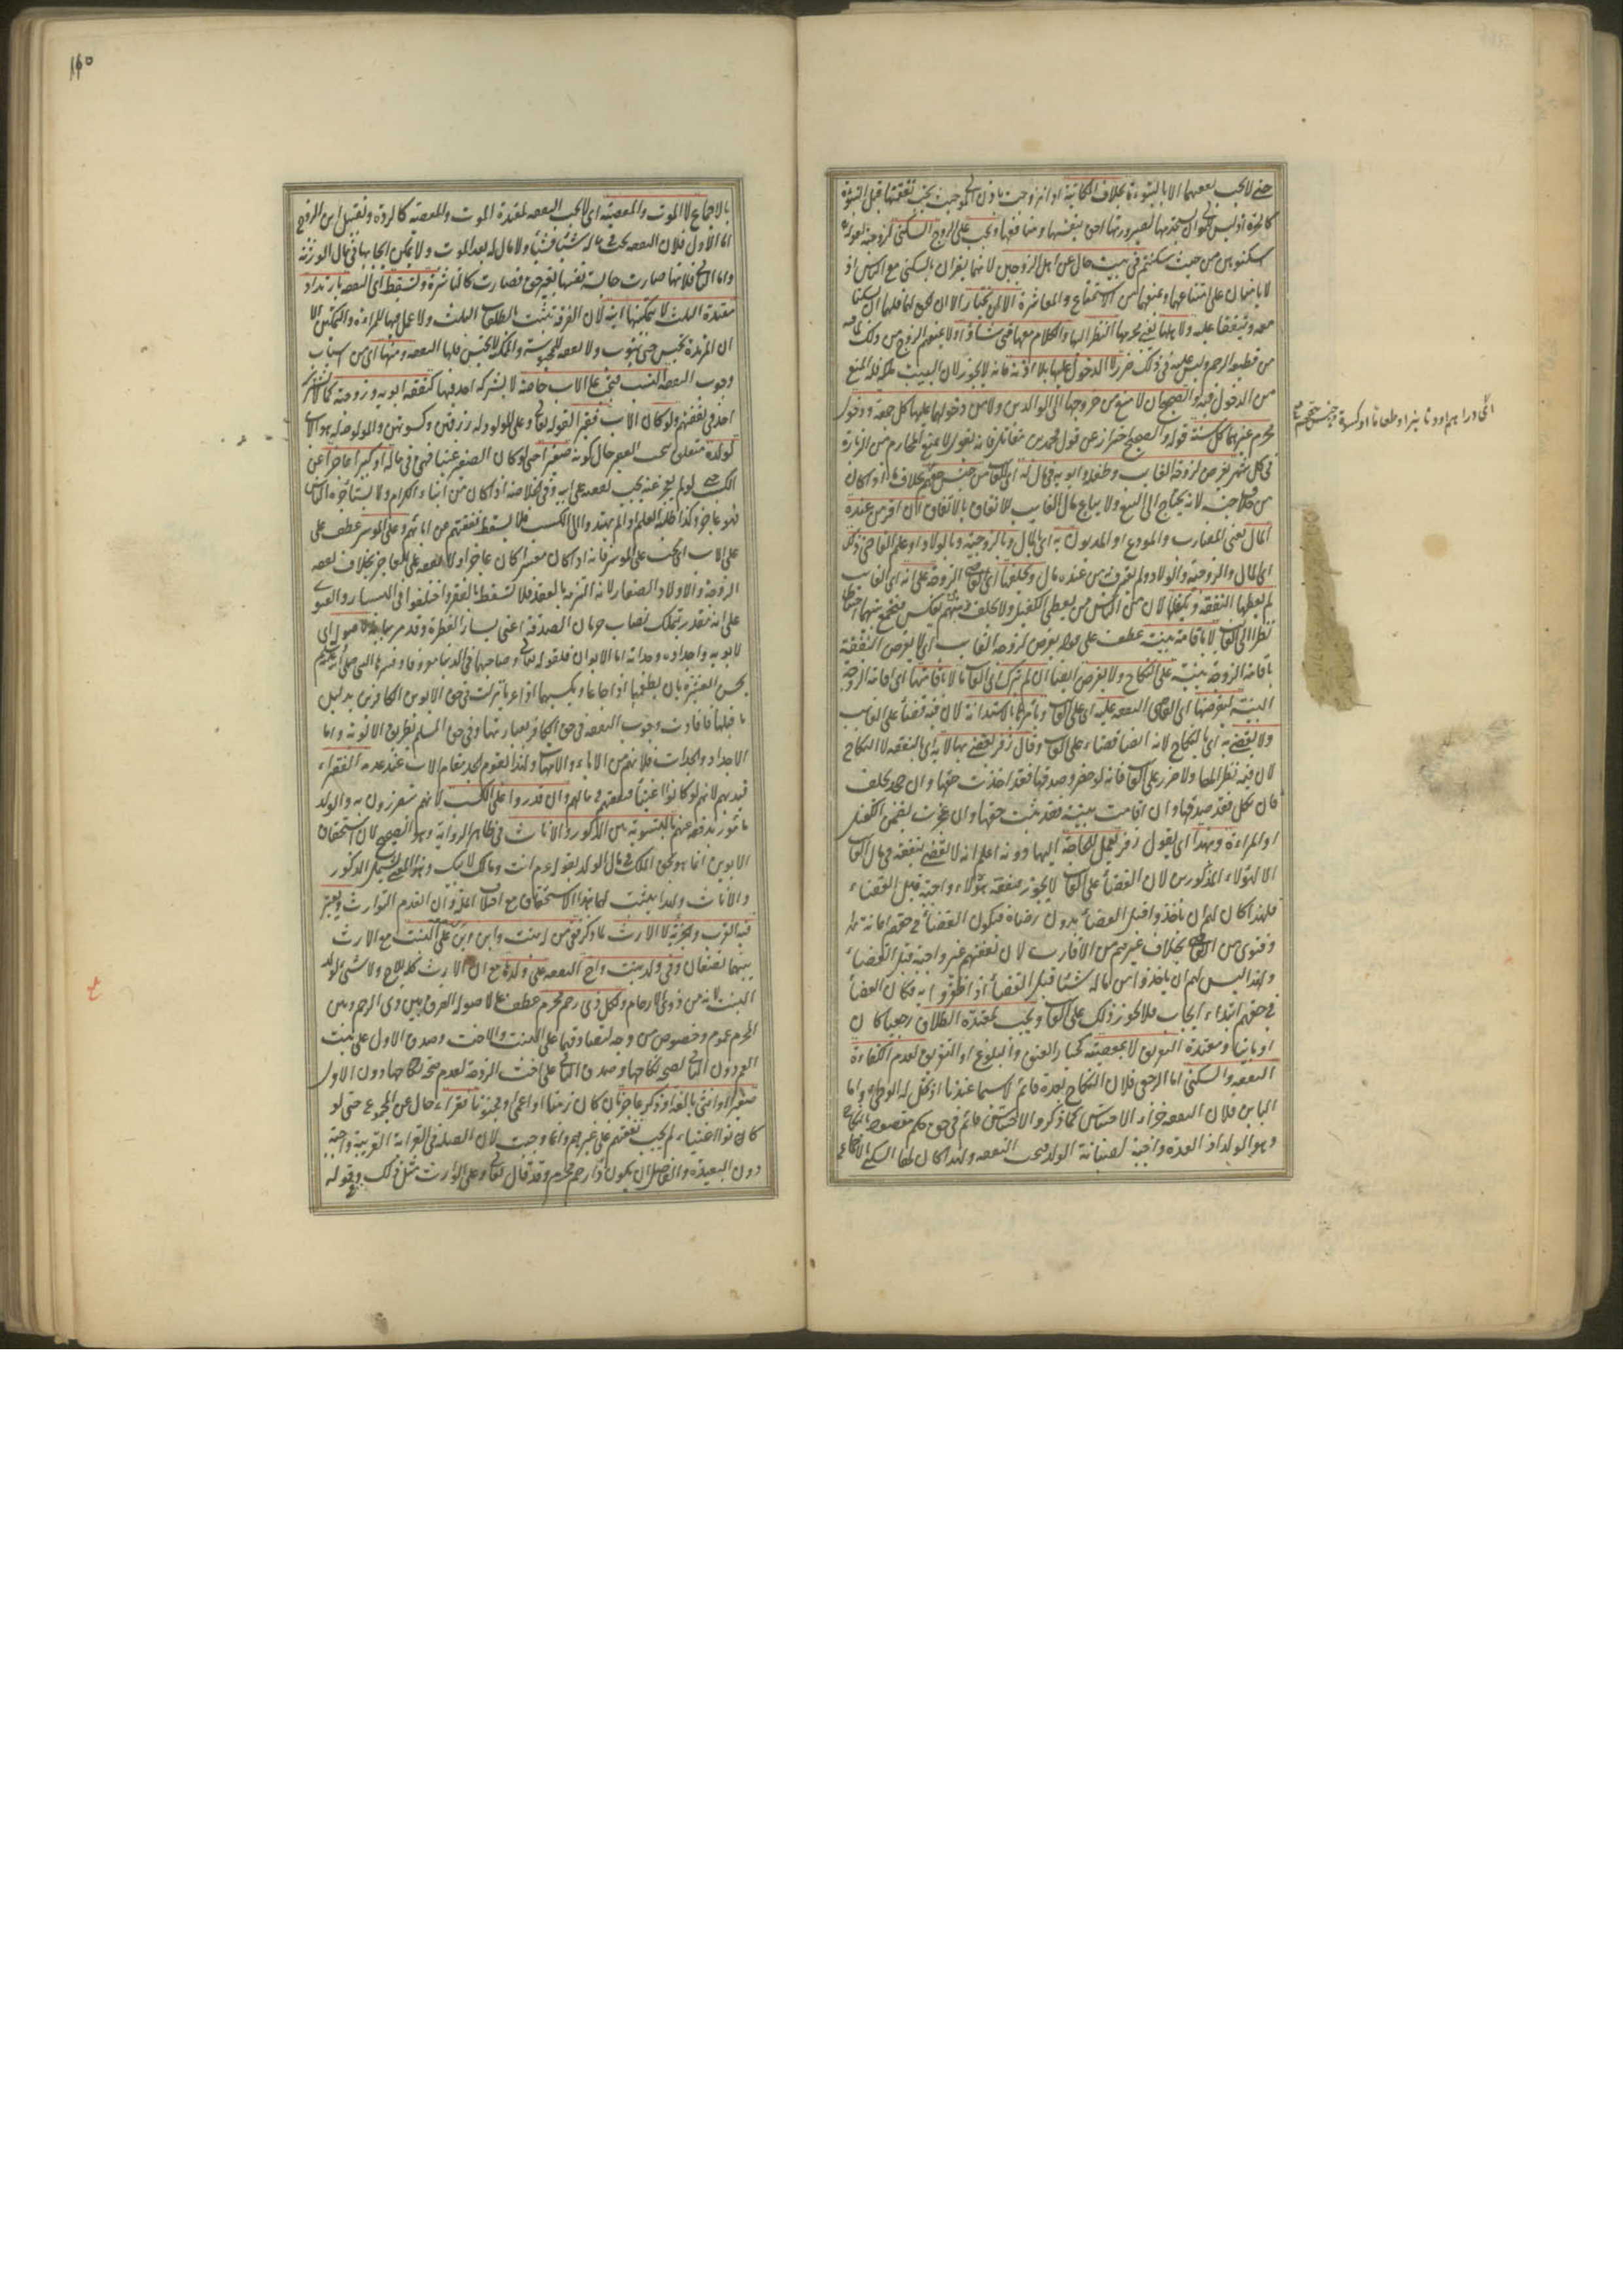 حتى لا يجب نفقتهما الا بالتبوئة بخلاف المكاتبة اذا تزوجت باذن المولى حيث يجب نفقتها قبل التبوئة
كالحرة اذ ليس للمولى ان يستخدمها لصيرورتها احق بنفسها ومنافعها ويجب على الزوج السكنى لزوجته لقوله تع
اسكنوهن من حيث سكنتم في بيت خال عن اهل الزوجين لانهما يضران بالسكنى مع الناس اذ
لا يأمنان على متاعهما ويمنعهما من الاستمتاع والمعاشرة الا ان يختارا
معه وينفقا عليه ولاهلها يعنى محرمها النظر اليها والكلام معها متى شاؤا ولا يمنعهم الزوج من ذلك لما فيه
من قطيعة الرحم وليس عليه في ذلك ضرر لا الدخول عليها بلا اذنه فانه لا يجوز لان البيت ملكه فله المنع
من الدخول فيه والصحيح ان لا منع من خروجها الى الوالدين ولا من دخولهما عليها كل جمعة ودخول
محرم غيرهما كل سنة قوله والصحيح احتراز عن قول محمد بن مقاتل فانه يقول لا يمنع المحارم من الزيارة
في كل شهر يفرض لزوجة الغائب وطفله وابويه في مال له اى للغائب من جنس حقهم بخلاف ما اذا كان
من خلاف جنسه لانه يحتاج الى البيع ولا يباع مال الغائب للانفاق بالاتفاق ان اقر من عنده
المال يعنى المضارب والمودع او المديون به اى بالمال وبالزوجية وبالولاد او علم القاضى ذلك
اى المال والزوجية والولاد ولم يعترف من عنده مال ويحلفها اى القاضى الزوجة على انه اى الغائب
لم يعطها النفقة ويكفلها لان من الناس من يعطى الكفيل ولا يحلف ومنهم بعكس فيجمع بينهما احتياطا
نظرا الى الغائب لا باقامة بينة عطف على قوله يفرض لزوجة الغائب اى لا يفرض النفقة
باقامة الزوجة بينة على النكاح ولا يفرض ايضا ان لم يترك اى الغائب مالا باقامتها اى اقامة الزوجة
البينة ليفرضها اى القاضى النفقة عليه اى على الغائب ويأمرها بالاستدانة لان فيه قضاء على الغائب
ولا يقضى به اى بالنكاح لانه ايضا قضاء على الغائب وقال زفر يقضى بها لا به اى بالنفقة لا النكاح
لان فيه نظرا لها ولا ضرر على الغائب فانه لو حضر وصدقها فقد اخذت حقها وان جحد يحلف
فان نكل فقد صدقها وان اقامت بينة فقد ثبت حقها وان عجزت يضمن الكفيل
او المرأة وبهذا اى بقول زفر يعمل للحاجة اليها دونه اعلم انه لا يقضى بنفقة في مال الغائب
الا لهؤلاء المذكورين لان القضاء على الغائب لا يجوز فنفقة هؤلاء واجبة قبل القضاء
فلهذا كان لهم ان يأخذوا قبل القضاء بدون رضاه فيكون القضاء في حقهم اعانة لهم
وفتوى من القاضى بخلاف غيرهم من الاقارب لان نفقتهم غير واجبة قبل القضاء
ولهذا ليس لهم ان يأخذوا من ماله شيئا قبل القضاء اذا ظفروا به فكان القضاء
في حقهم ابتداء ايجاب فلا يجوز ذلك على الغائب ويجب لمعتدة الطلاق رجعيا كان
او باينا ومعتدة التفريق لا بمعصية كخيار العتق والبلوغ او التفريق لعدم الكفاءة
النفقة والسكنى اما الرجعى فلان النكاح بعده قائم لا سيما عندنا اذ يحل له الوطئ واما
الباين فلان النفقة جزاء الاحتباس كما ذكر والاحتباس قائم في حق حكم مقصود بالنكاح
وهو الولد اذ العدة واجبة لصيانة الولد فيجب النفقة ولهذا كان لها السكنى
اى دراهم او دنانير او طعاما او كسوة
١١٥
بالاجماع لا الموت والمعصية اى لا يجب النفقة لمعتدة الموت والمعصية كالردة وتقبيل ابن الزوج
اما الاول فلان النفقة يجب في ماله شيئا فشيئا ولا مال له بعد الموت ولا يمكن ايجابها في مال الورثة
واما الثانى فلانها صارت حابسة نفسها بغير حق فصارت كالناشزة وتسقط اى النفقة بارتداد
معتدة الثلث لا تمكينها ابنه لان الفرقة تثبت بالطلقات الثلث ولا عمل فيها للمرأة والتمكين الا
ان المرتدة تحبس حتى تتوب ولا نفقة للمحبوسة والممكنة لا تحبس فلها النفقة ومنها اى من اسباب
وجوب النفقة النسب فيجب على الاب خاصة لا يشركه احد فيها كنفقة ابويه وزوجته
احد في نفقتهم ولو كان الاب فقيرا لقوله تعالى وعلى المولود له رزقهن وكسوتهن والمولود له هو الاب
لولده متعلق بيجب الفقير حال كونه صغيرا حتى لو كان الصغير غنيا فهى في ماله او كبيرا عاجزا عن
الكسب حتى لو لم يعجز عنه يجب نفقته على ابيه وفى الخلاصة اذا كان من ابناء الكرام ولا يستأجره الناس
فهو عاجز وكذا طلبة العلم اذا لم يهتدوا الى الكسب فلا يسقط نفقتهم عن ابائهم وعلى الموسر عطف على
على الاب اى يجب على الموسر فانه اذا كان معسرا كان عاجزا ولا نفقة على العاجز بخلاف نفقة
الزوجة والاولاد الصغار لانه التزمه بالعقد فلا تسقط بالفقر واختلفوا في اليسار والفتوى
على انه مقدر بتملك نصاب حرمان الصدقة اعنى يسار الفطرة وقد مر بيانه لاصوله اى
لابويه واجداده وجداته اما الابوان فلقوله تعالى وصاحبهما في الدنيا معروفا وفسره النبى صلى الله عليه وسلم
بحسن العشرة بان يطعمهما اذا جاعا ويكسيهما اذا عريا نزلت في حق الابوين الكافرين بدليل
ما قبلها فافادت وجوب النفقة في حق الكافر بعبارتها وفى حق المسلم بطريق الاولوية واما
الاجداد والجدات فلانهم من الاباء والامهات ولهذا يقوم الجد مقام الاب عند عدمه الفقراء
قيد بهم لانهم لو كانوا اغنياء فنفقتهم في مالهم وان قدروا على الكسب لانهم يتضررون به والولد
مأمور بدفعه عنهم بالتسوية بين الذكور والاناث في ظاهر الرواية وهو الصحيح لان استحقاق
الابوين انما هو بحق الملك في مال الولد بقوله عم انت ومالك لابيك وهذا المعنى يشمل الذكور
والاناث ولهذا يثبت لهما هذا الاستحقاق مع اختلاف الملة وان انعدم التوارث ويعتبر
فيه القرب والجزئية لا الارث لما ذكر ففى من له بنت وابن ابن على البنت مع ان الارث
بينهما نصفان وفى ولد بنت واخ النفقة على ولدها مع ان الارث كله للاخ ولا شئ لولد
البنت لانه من ذوى الارحام ولكل ذى رحم محرم عطف على لاصوله الفرق بين ذى الرحم وبين
المحرم عموم وخصوص من وجه لتصادقهما على البنت والاخت وصدق الاول على بنت
العم دون الثانى لصحة نكاحها وصدق الثانى على اخت الزوجة لعدم صحة نكاحها دون الاول
صغير او انثى بالغة او ذكر عاجز بان كان زمنا او اعمى او مجنونا فقراء حال عن المجموع حتى لو
كانوا اغنياء لم يجب نفقتهم على غيرهم وانما وجبت لان الصلة في القرابة القريبة واجبة
دون البعيدة والفاصل ان يكون ذا رحم محرم وقد قال تعالى وعلى الوارث مثل ذلك وقوله